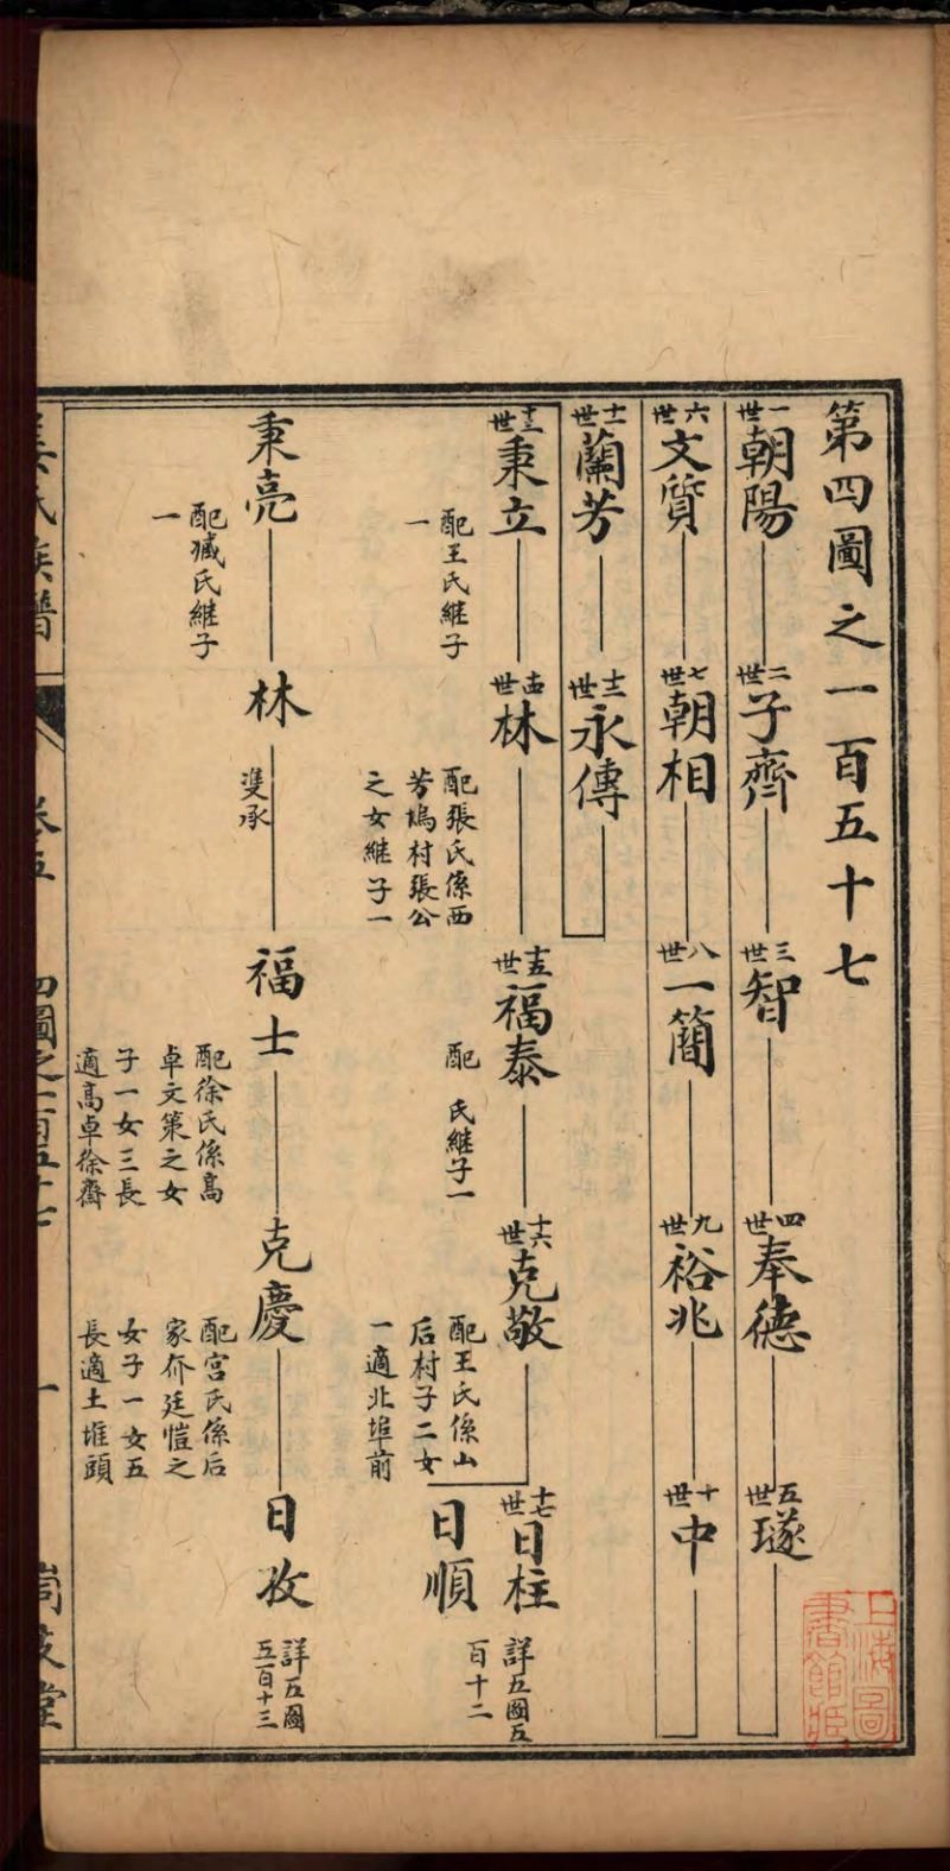 第四圖之一百五十七
一世 朝陽 二世 子齊 三世 智 四世 奉德 五世 璲
六世 文質 七世 朝相 八世 一簡 九世 裕兆 十世 中
十一世 蘭芳 十二世 永傳
十三世 秉立 十四世 林 十五世 福泰 十六世 克敬 十七世 日柱
配王氏継子
一
配張氏係西
芳塢村張公
之女継子一
配 氏継子一
配王氏係山
后村子二女
一適北埠前
日順
詳五圖五
百十二
秉亮 林 福士 克慶 日孜
配臧氏継子
一
雙承
配徐氏係高
卓文策之女
子一女三長
適高卓徐齊
配宮氏係后
家夼廷愷之
女子一女五
長適土堆頭
詳五圖
五百十三
氏族譜 卷五 四圖之一百五十七 一
上海圖書館